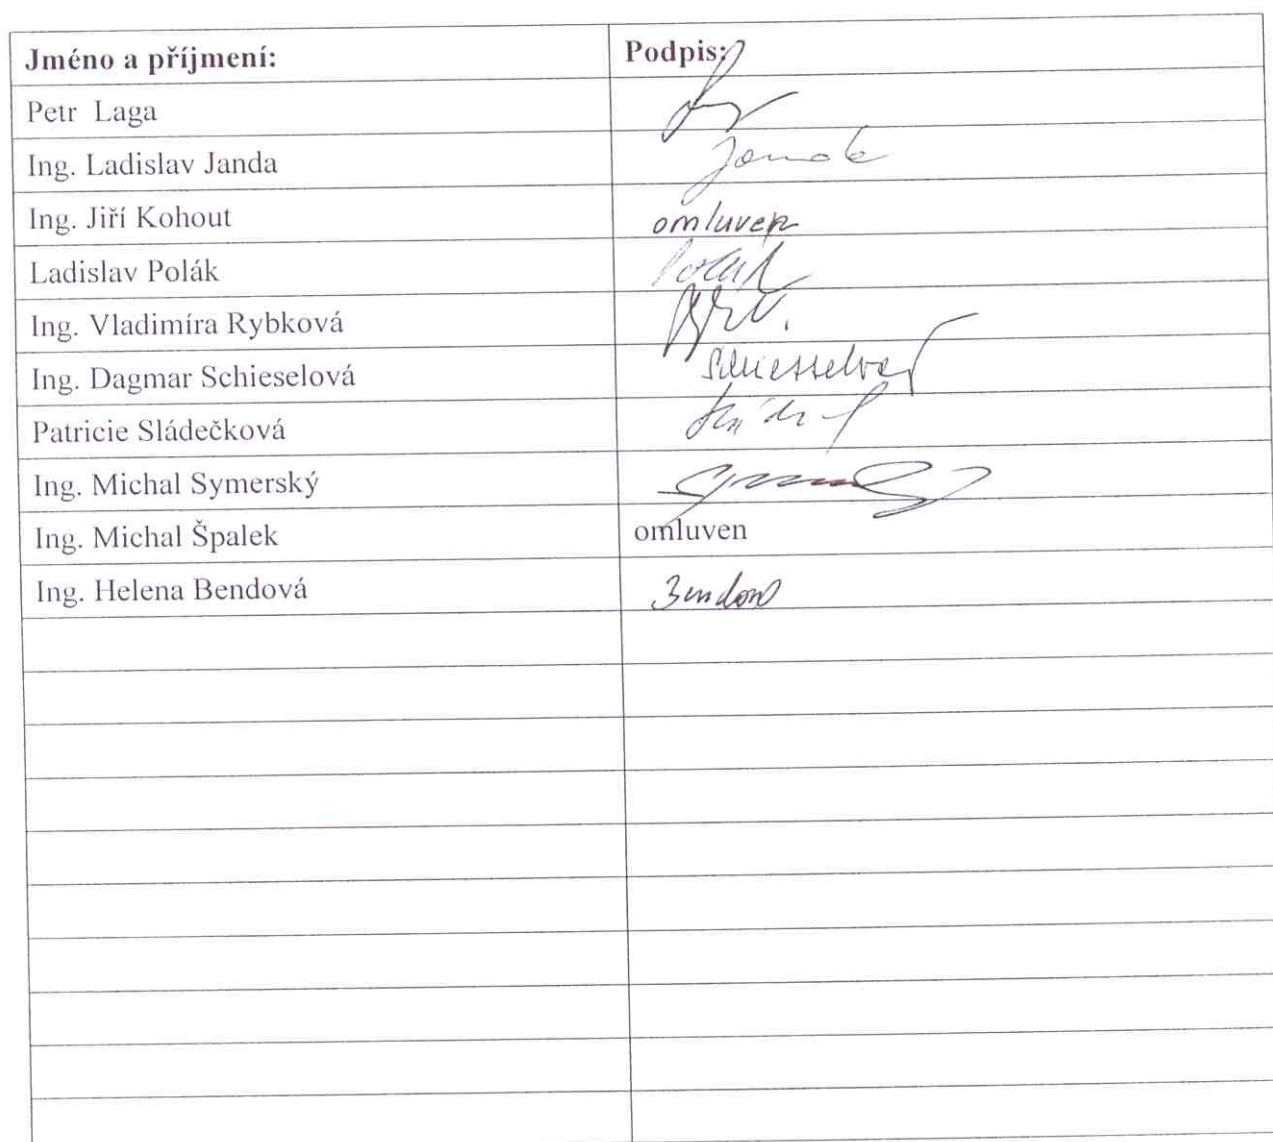 Jméno a příjmení: Podpis:
Petr Laga
Ing. Ladislav Janda
Ing. Jiří Kohout omluven
Ladislav Polák Polák
Ing. Vladimíra Rybková
Ing. Dagmar Schieselová
Patricie Sládečková
Ing. Michal Symerský
Ing. Michal Špalek omluven
Ing. Helena Bendová